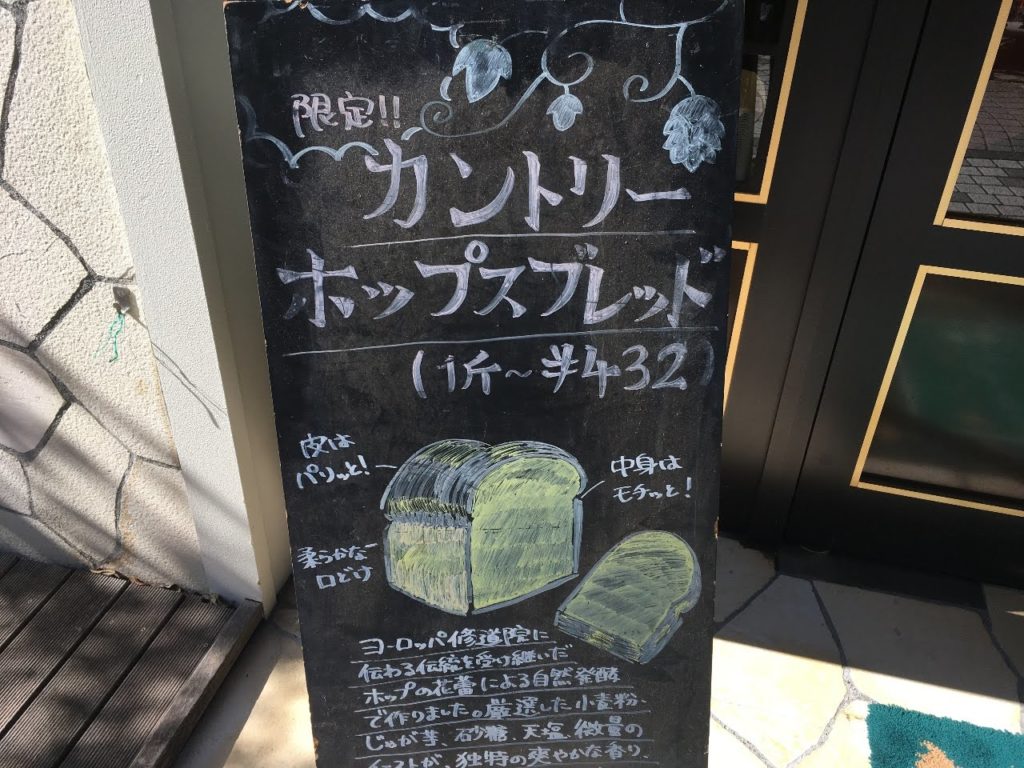 限定!!
カントリー
ホップスブレッド
(1斤～¥432)
皮は
パリッと!
中身は
モチッと!
柔らかな
口どけ
ヨーロッパ修道院に
伝わる伝統を受け継いだ
ホップの花蕾による自然発酵
で作りました。厳選した小麦粉、
じゃが芋、砂糖、天塩、微量の
イーストが、独特の爽やかな香り、